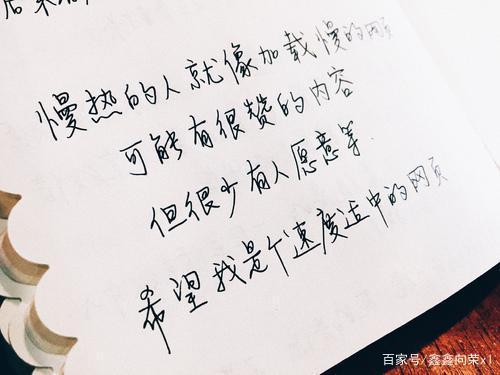 慢热的人就像加载慢的网页
可能有很赞的内容
但很少有人愿意等.
希望我是个速度适中的网页
百家号/鑫鑫向荣x1